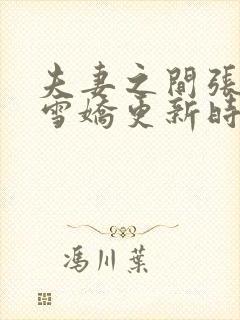 夫妻之間張
雪嬌更新時
馮川葉